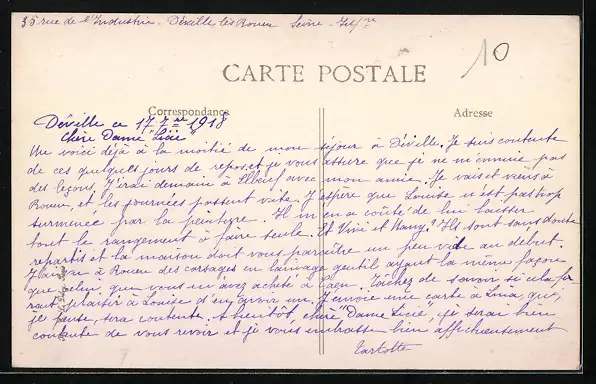 35 rue de l'Industrie. Déville lès Rouen Seine-Infre
10
CARTE POSTALE
Correspondance
Adresse
Déville ce 17 7re 1918
Chère Dame "Licie"
Me voici déjà à la moitié de mon séjour à Déville. Je suis contente
de ces quelques jours de repos, et je vous assure que je ne m'ennuie pas
des leçons. J'irai demain à Elbeuf avec mon amie. Je vais et viens à
Rouen, et les journées passent vite. J'espère que Louise n'est pas trop
surmenée par la peinture. Il m'en a coûté de lui laisser
tout le rangement à faire seule. Et Vivi et Many? Ils sont sans doute
repartis et la maison doit vous paraître un peu vide au début.
J'ai vu à Rouen des corsages en lainage gentil ayant la même façon
que celui que vous m'avez acheté à Caen. Tâchez de savoir si cela fe-
rait plaisir à Louise d'en avoir un. J'envoie une carte à Lina, qui,
je pense, sera contente. A bientôt, chère "Dame Licie", je serai bien
contente de vous revoir et je vous embrasse bien affectueusement
Carlotte